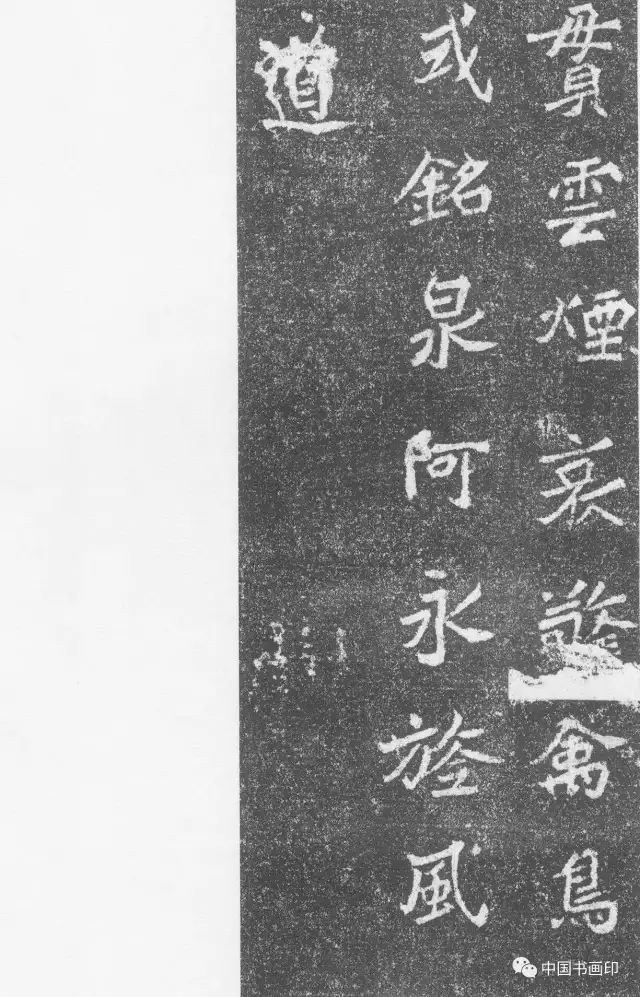 貫雲煙哀
禽鳥
或銘泉阿永旌風
道
中国书画印